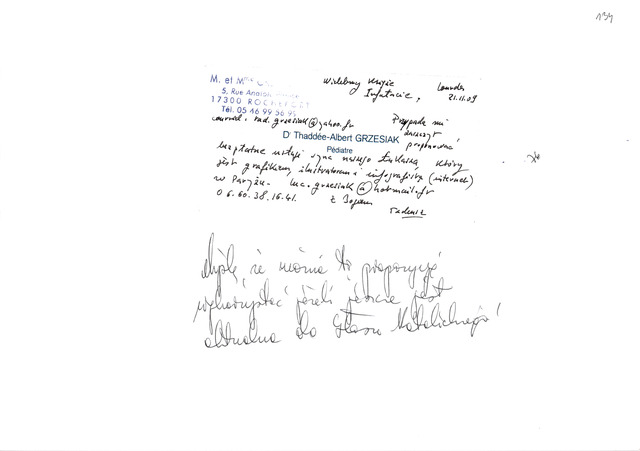 134
M. et Mme
5, Rue Anatole
17300 ROCHEFORT
Tél. 05 46 99 56 95
Wielebny Księże
Infułacie,
Lourdes
21.11.09
courriel: tad.grzesiak@yahoo.fr
Przypada mi
zaszczyt
proponować
Dr Thaddée-Albert GRZESIAK
Pédiatre
bezpłatne usługi syna naszego Łukasza, który
jest grafikiem, ilustratorem i infografistą (internet)
w Paryżu. luc.grzesiak@hotmail.fr
06.60.38.16.41. z Bogiem
Tadeusz
Myślę że można tę propozycję
wykorzystać jeżeli jeszcze jest
aktualna do Głosu Katolickiego!